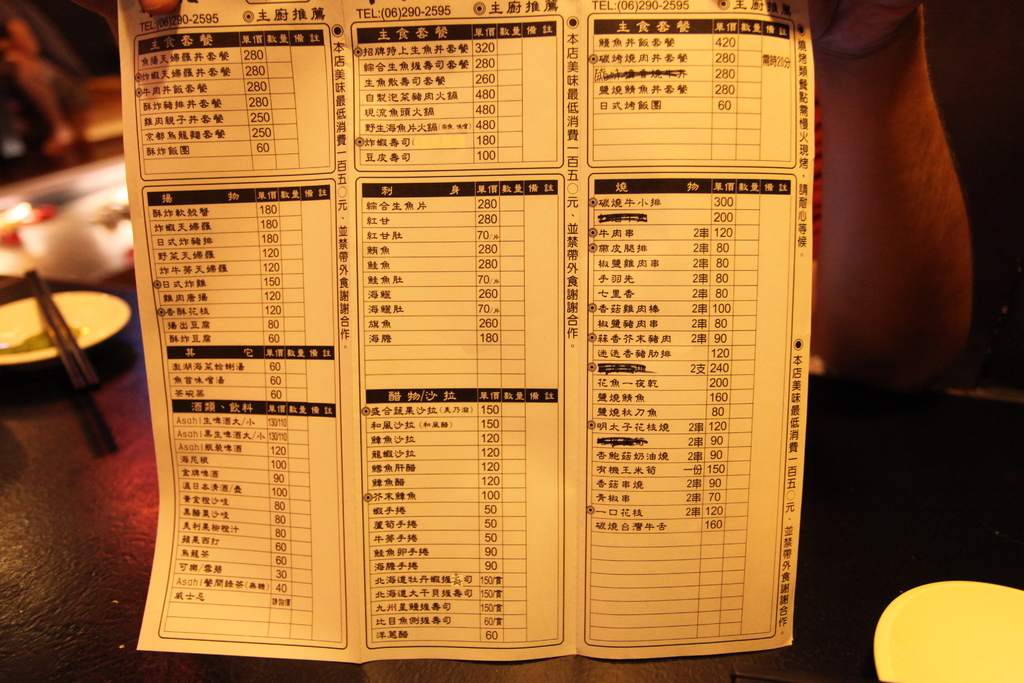 TEL:(06)290-2595 ◉主廚推薦
主食套餐 單價 數量 備註
魚揚天婦羅丼套餐 280
◉炸蝦天婦羅丼套餐 280
◉牛肉丼飯套餐 280
酥炸豬排丼套餐 280
雞肉親子丼套餐 250
京都烏龍麵套餐 250
酥炸飯團 60
揚物 單價 數量 備註
酥炸軟殼蟹 180
炸蝦天婦羅 180
日式炸豬排 180
野菜天婦羅 120
炸牛蒡天婦羅 120
◉日式炸雞 150
雞肉唐揚 120
◉香酥花枝 120
揚出豆腐 80
酥炸豆腐 80
其它 單價 數量 備註
澎湖海菜蛤蜊湯 60
魚首味噌湯 60
茶碗蒸 60
酒類、飲料 單價 數量 備註
Asahi生啤酒大/小 130/110
Asahi黑生啤酒大/小 130/110
Asahi瓶裝啤酒 120
海尼根 100
金牌啤酒 90
溫日本清酒/壺 100
黃金橙沙哇 80
黑醋栗沙哇 80
美利果柳橙汁 80
蘋果西打 60
烏龍茶 60
可樂/雪碧 30
Asahi餐間綠茶(無糖) 40
威士忌
◉本店美味最低消費一百五〇元、並禁帶外食謝謝合作。
TEL:(06)290-2595 ◉主廚推薦
主食套餐 單價 數量 備註
◉招牌特上生魚丼套餐 320
綜合生魚握壽司套餐 280
生魚散壽司套餐 260
自製泡菜豬肉火鍋 480
現流魚頭火鍋 480
野生海魚片火鍋 480
◉炸蝦壽司 180
豆皮壽司 100
刺身 單價 數量 備註
綜合生魚片 280
紅甘 280
紅甘肚 70/片
鮪魚 280
鮭魚 280
鮭魚肚 70/片
海鱺 260
海鱺肚 70/片
旗魚 260
海膽 180
醋物/沙拉 單價 數量 備註
◉盛合蔬果沙拉(美乃滋) 150
和風沙拉(和風醋) 150
鱆魚沙拉 120
龍蝦沙拉 120
鱈魚肝醋 120
鱆魚醋 120
◉芥末鱆魚 100
蝦手捲 50
蘆筍手捲 50
牛蒡手捲 50
鮭魚卵手捲 90
海膽手捲 90
北海道牡丹蝦握壽司 150/貫
北海道大干貝握壽司 150/貫
九州星鰻握壽司 150/貫
比目魚側握壽司 60/貫
洋蔥醋 60
◉本店美味最低消費一百五〇元、並禁帶外食謝謝合作。
TEL:(06)290-2595 ◉主廚推薦
主食套餐 單價 數量 備註
鰻魚丼飯套餐 420
◉碳烤燒肉丼套餐 280 需時20分
280
鹽燒鯖魚丼套餐 280
日式烤飯團 60
燒物 單價 數量 備註
◉碳燒牛小排 300
200
◉牛肉串 2串 120
◉帶皮腿排 2串 80
椒鹽雞肉串 2串 80
手羽先 2串 80
七里香 2串 80
◉香菇雞肉棒 2串 100
椒鹽豬肉串 2串 80
◉蒜香芥末豬肉 2串 90
迷迭香豬肋排 120
2支 240
花魚一夜乾 200
鹽燒鯖魚 160
鹽燒秋刀魚 80
◉明太子花枝燒 2串 120
2串 90
杏鮑菇奶油燒 2串 90
有機玉米筍 一份 150
香菇串燒 2串 90
青椒串 2串 70
◉一口花枝 2串 120
碳燒台灣牛舌 160
◉燒烤類餐點需慢火現烤，請耐心等候。
◉本店美味最低消費一百五〇元、並禁帶外食謝謝合作。